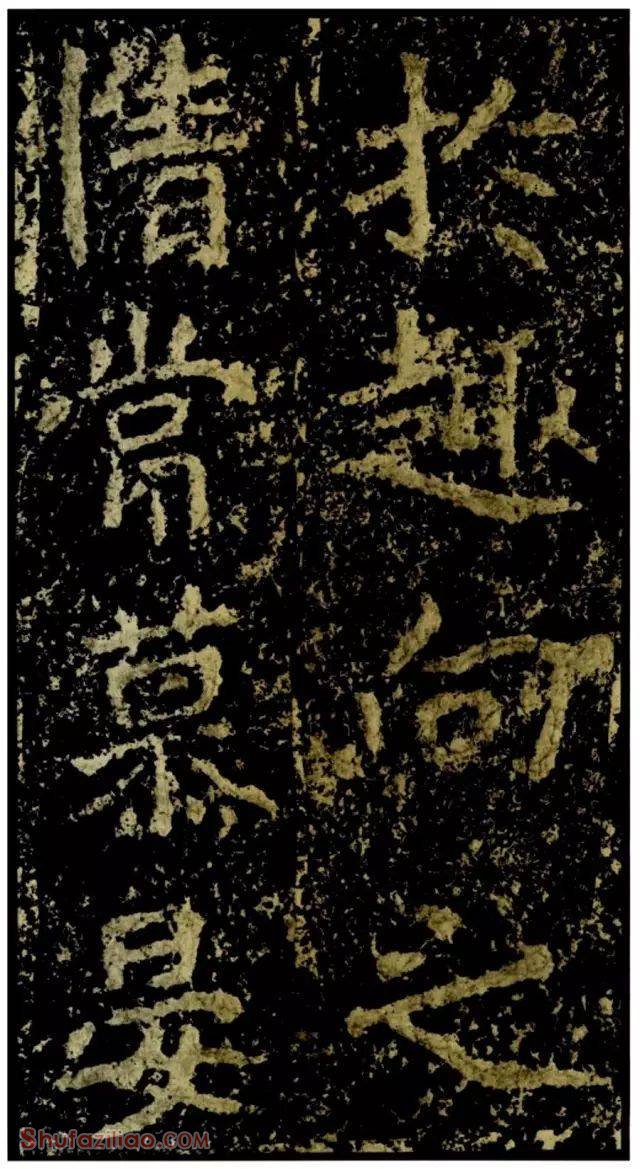 於趣向之
情常慕晏
Shufaziliao.COM